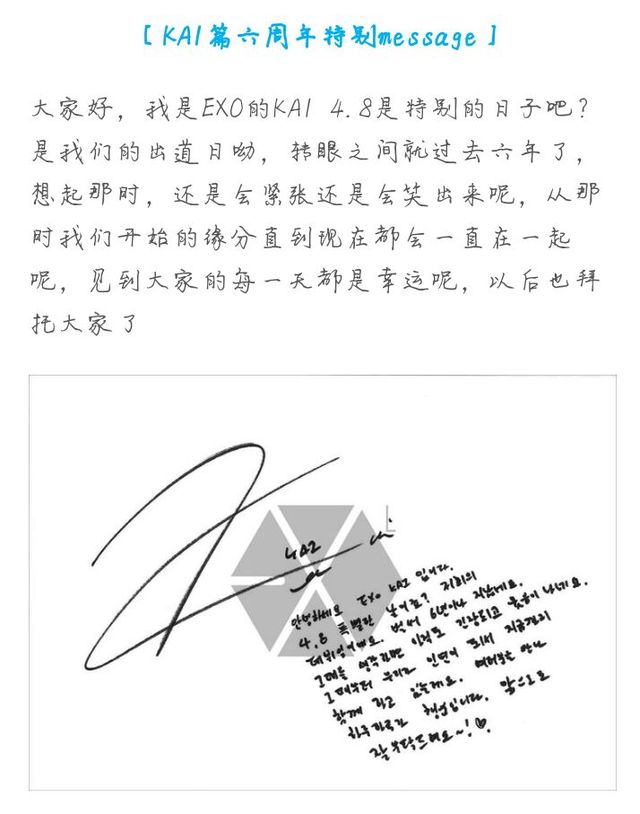 [ KAI篇六周年特别message ]
大家好，我是EXO的KAI 4.8是特别的日子吧？
是我们的出道日呦，转眼之间就过去六年了，
想起那时，还是会紧张还是会笑出来呢，从那
时我们开始的缘分直到现在都会一直在一起
呢，见到大家的每一天都是幸运呢，以后也拜
托大家了
KAI
안녕하세요 EXO KAI 입니다.
4.8 특별한 날이죠? 저희의
데뷔일이예요. 벌써 6년이나 지났네요.
그때를 생각하면 아직도 긴장되고 웃음이 나네요.
그때부터 우리가 인연이 되서 지금까지
함께 하고 있는게요. 여러분을 만나
하루하루가 행운입니다. 앞으로도
잘 부탁드려요~!♡.